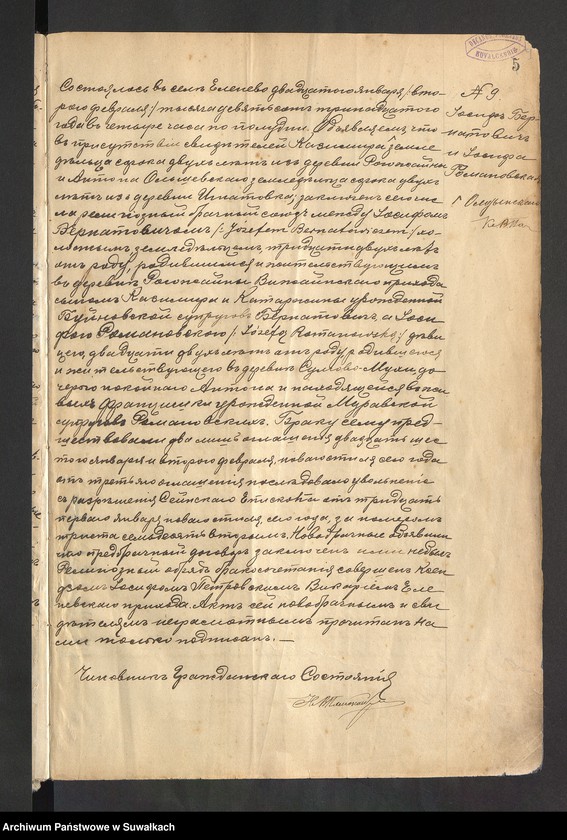 5
№ 9.
Іосифъ Бер-
натовичъ
и Іозефа
Романовская
Состоялось въ селѣ Еленево двадцатого января /: вто-
рого февраля :/ тысяча девятьсотъ тринадцатого
года въ четыре часа по полудни. Объявляемъ, что
въ присутствіи свидѣтелей Казимира земле
дѣльца сорока двухъ лѣтъ изъ деревни
и Антона земледѣльца сорока двухъ
лѣтъ изъ деревни заключенъ сего чис
ла религіозный брачный союзъ между Іосифомъ
Бернатовичемъ /: Józefem Bernatowiczem :/ хо-
лостымъ земледѣльцемъ, тридцати двухъ лѣтъ
отъ роду, родившимся и жительствующимъ
въ деревнѣ Рогожайны Вижайнскаго прихода
сыномъ Казимира и Катаржины урожденной
супруговъ Бернатовичъ а Іозе
фою Романовскою /: Józefą Romanowską :/ дѣви
цею, двадцати двухъ лѣтъ отъ роду родившеюся
и жительствующею въ деревнѣ до
черью покойнаго Антона и находящейся въ жи
выхъ Францишки урожденной Муравской
супруговъ Романовскихъ. Браку сему пред-
шествовали два лишь оглашенія двадцать шес
того января и второго февраля, новаго стиля сего года
отъ третьяго оглашенія послѣдовало увольненіе
съ разрѣшенія Сейнскаго Епископа отъ тридцать
перваго января новаго стиля, сего года, за номеромъ
триста семьдесятъ вторымъ. Новобрачные объявили
что предбрачный договоръ заключенъ ими не былъ
Религіозный обрядъ бракосочетанія совершенъ Ксен
дзомъ Іосифомъ Петровскимъ Викаріемъ Еле
невскаго прихода. Актъ сей новобрачнымъ и сви
дѣтелямъ неграмотнымъ прочитанъ На
ми только подписанъ. —
Чиновникъ Гражданскаго Состоянія
Archiwum Państwowe w Suwałkach